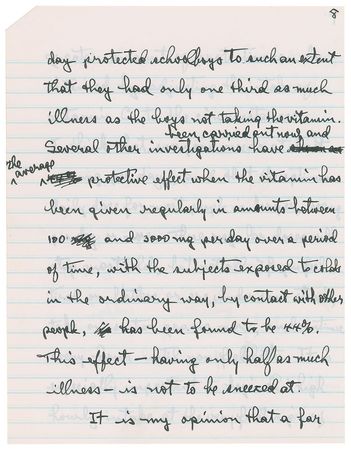 8
day protected schoolboys to such an extent
that they had only one third as much
illness as the boys not taking the vitamin.
been carried out now, and
Several other investigations have
the average
protective effect when the vitamin has
been given regularly in amounts between
100 and 3000 mg per day over a period
of time, with the subjects exposed to colds
in the ordinary way, by contact with other
people, has been found to be 44%.
This effect — having only half as much
illness — is not to be sneezed at.
It is my opinion that a far